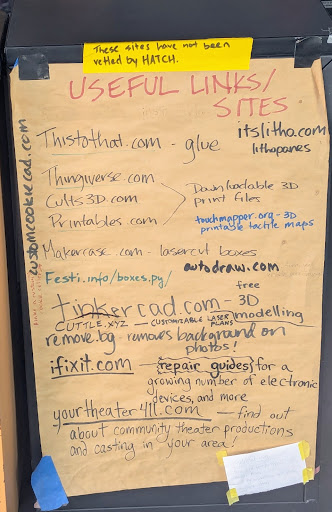 These sites have not been
vetted by HATCH.
USEFUL LINKS/
SITES
customcookiecad.com
Thistothat.com - glue
itslitho.com
lithopanes
Thingiverse.com
Cults3D.com
Printables.com
Downloadable 3D
print files
touchmapper.org - 3D
printable tactile maps
Makercase.com - lasercut boxes
Festi.info/boxes.py/
autodraw.com
tinkercad.com - free
3D
modelling
CUTTLE.XYZ - CUSTOMIZABLE LASER
PLANS
remove.bg - removes background on
photos!
ifixit.com - repair guides for a
growing number of electronic
devices, and more
yourtheater411.com - find out
about community theater productions
and casting in your area!